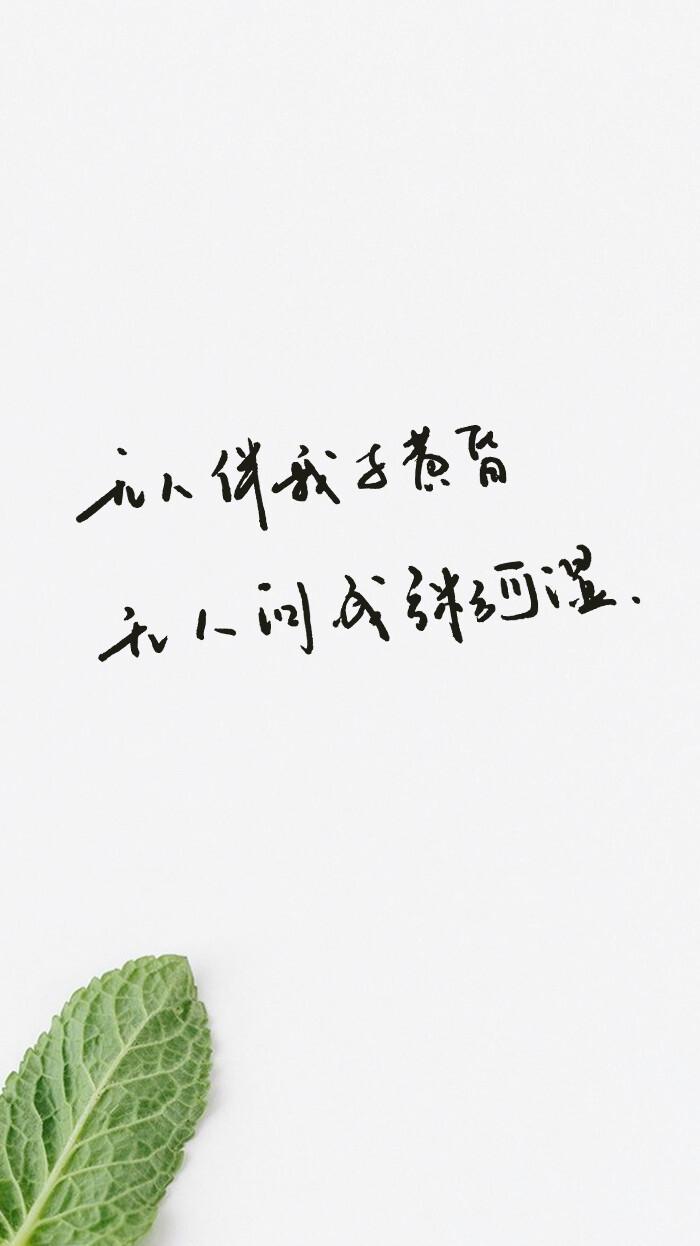 无人伴我立黄昏
无人问我粥可温.